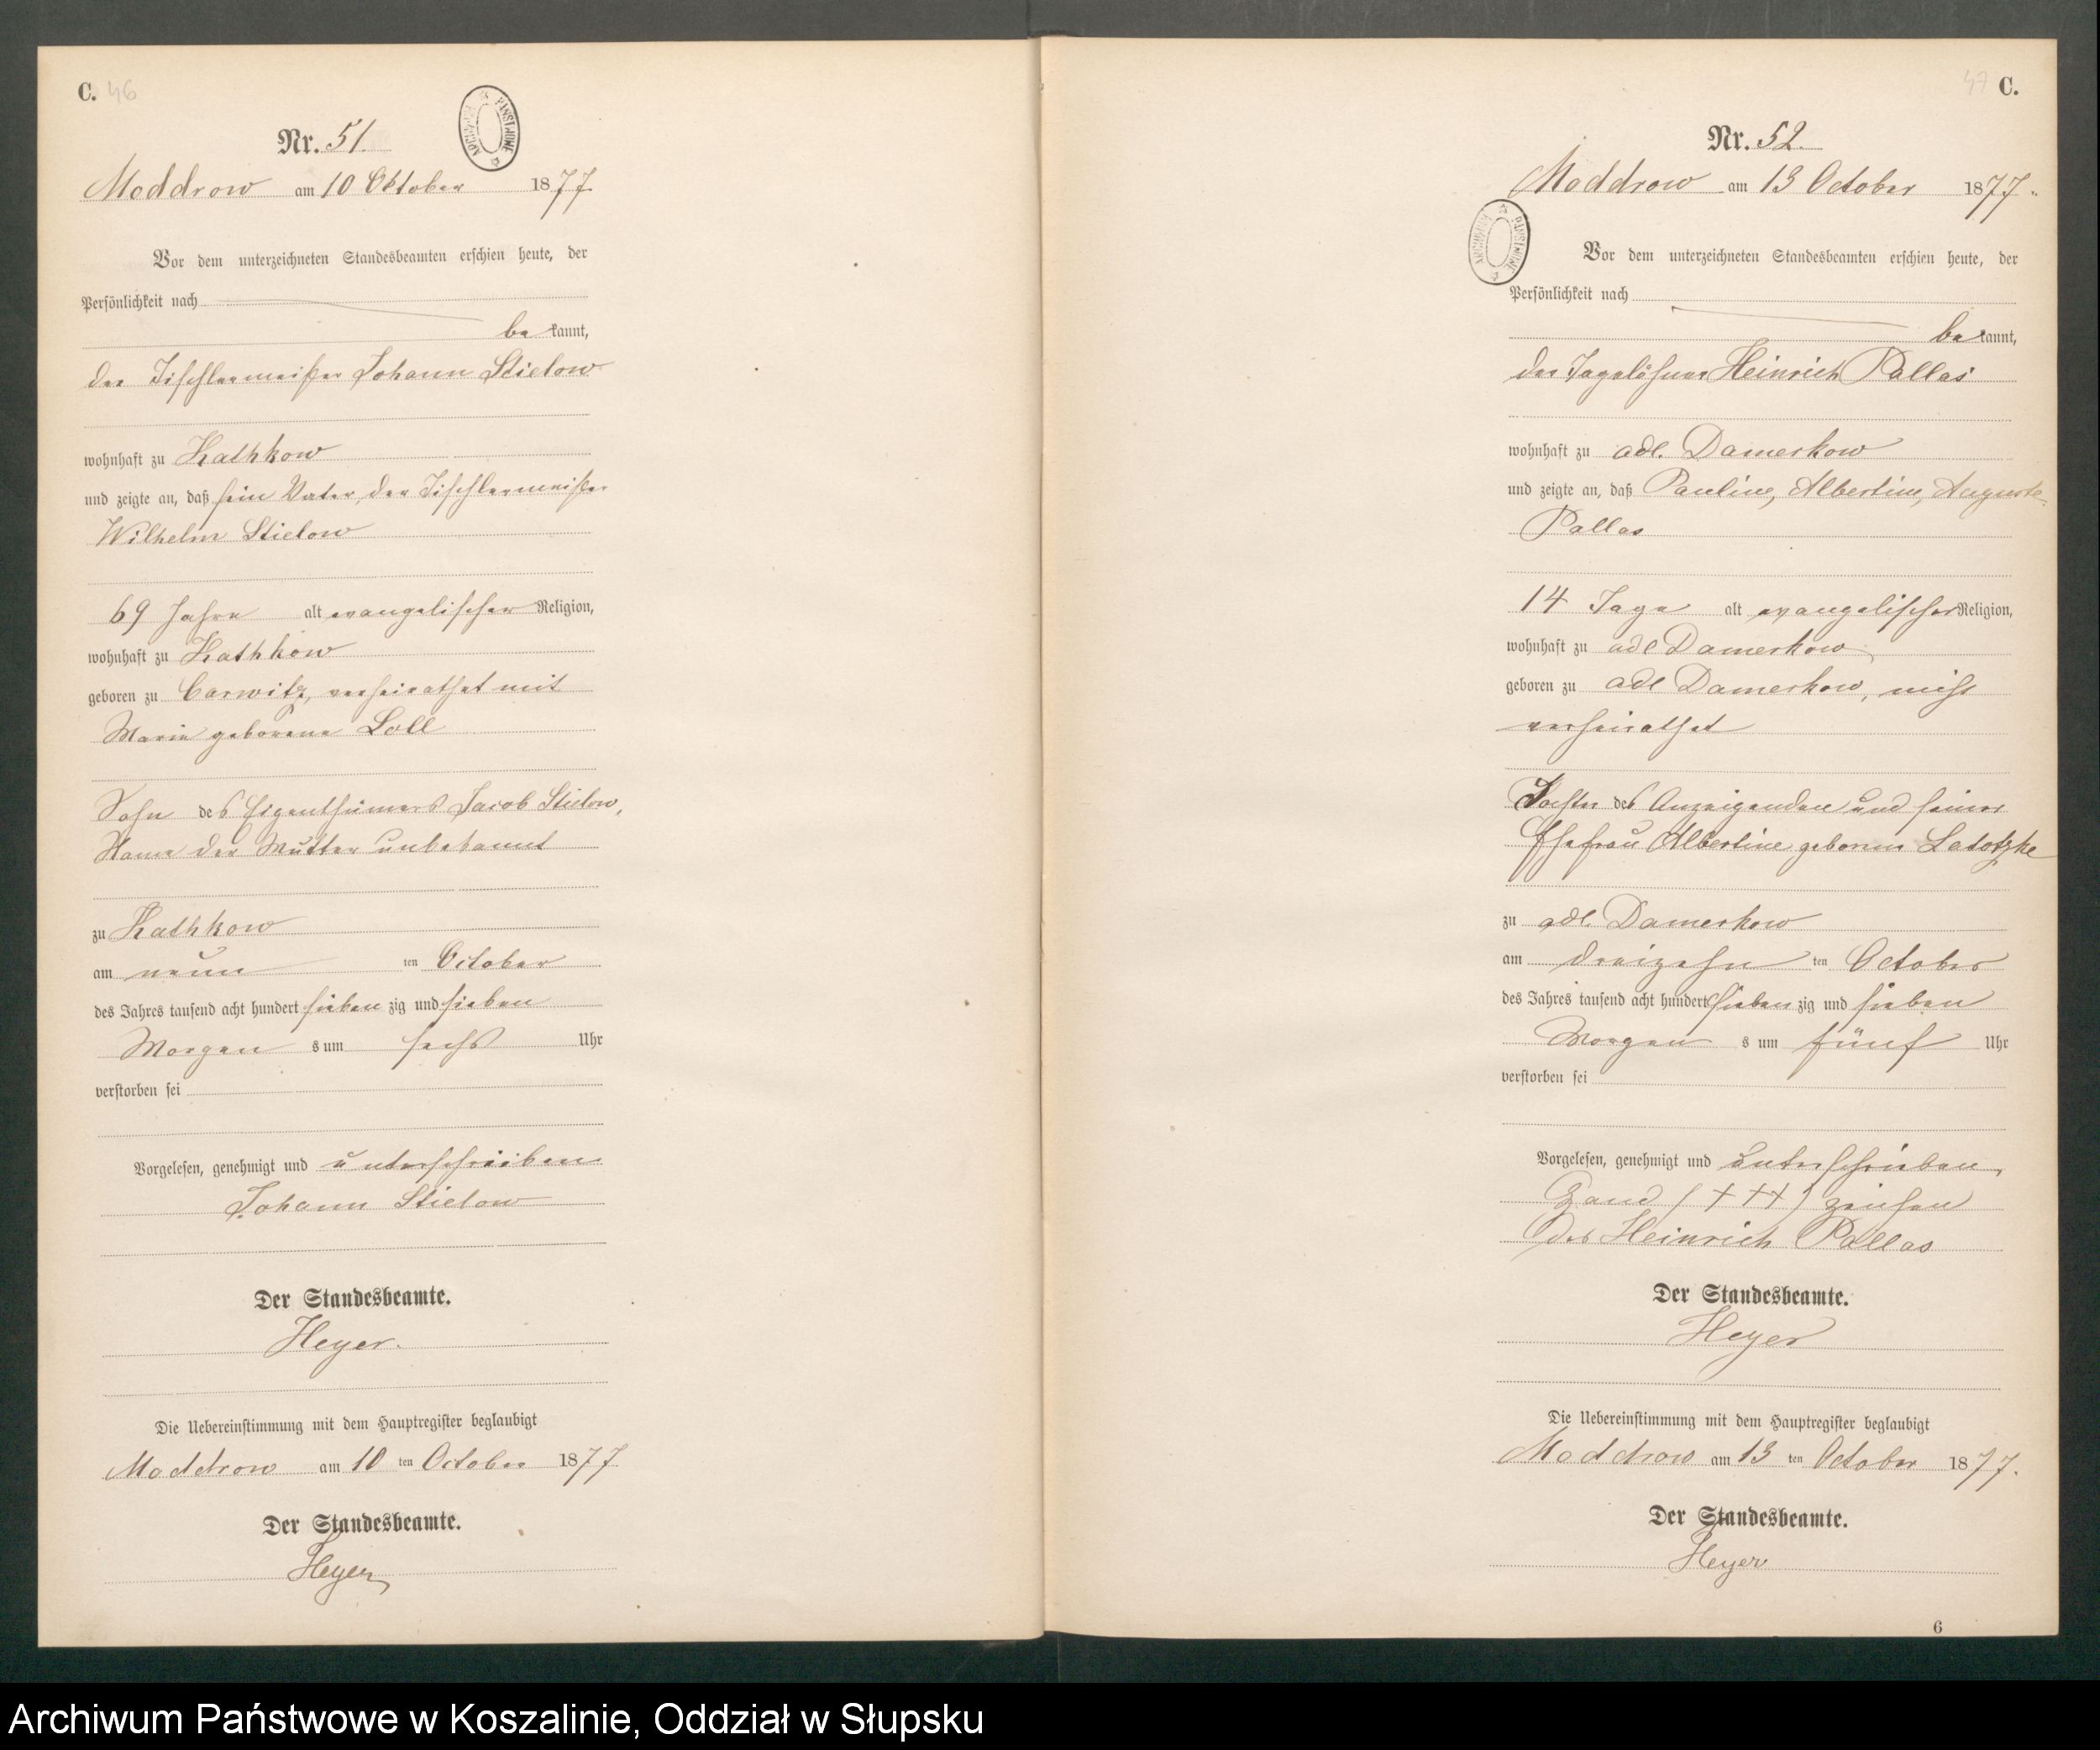 C. 46
ARCHIWUM PAŃSTWOWE
Nr. 51.
Moddrow am 10 Oktober 1877.
Vor dem unterzeichneten Standesbeamten erschien heute, der
Persönlichkeit nach
be kannt,
der Tischlermeister Johann Stielow
wohnhaft zu Kathkow
und zeigte an, daß sein Vater, der Tischlermeister
Wilhelm Stielow
69 Jahre alt evangelischer Religion,
wohnhaft zu Kathkow
geboren zu Carwitz, verheirathet mit
Marie geborene Loll
Sohn des Eigenthümers Jacob Stielow,
Name der Mutter unbekannt
zu Kathkow
am neun ten October
des Jahres tausend acht hundert sieben zig und sieben
Morgen s um sechs Uhr
verstorben sei
Vorgelesen, genehmigt und unterschrieben
Johann Stielow
Der Standesbeamte.
Heyer.
Die Uebereinstimmung mit dem Hauptregister beglaubigt
Moddrow am 10 ten October 1877.
Der Standesbeamte.
Heyer
47 C.
Nr. 52.
Moddrow am 13 October 1877.
ARCHIWUM PAŃSTWOWE
Vor dem unterzeichneten Standesbeamten erschien heute, der
Persönlichkeit nach
be kannt,
der Tagelöhner Heinrich Pallas
wohnhaft zu adl. Damerkow
und zeigte an, daß Pauline, Albertine, Auguste
Pallas
14 Tage alt evangelischer Religion,
wohnhaft zu adl Damerkow
geboren zu adl Damerkow, nicht
verheirathet
Tochter des Anzeigenden und seiner
Ehefrau Albertine geborene Latotzke
zu adl. Damerkow
am dreizehn ten October
des Jahres tausend acht hundert sieben zig und sieben
Morgen s um fünf Uhr
verstorben sei
Vorgelesen, genehmigt und unterschrieben,
Hand (+++) zeichen
des Heinrich Pallas
Der Standesbeamte.
Heyer
Die Uebereinstimmung mit dem Hauptregister beglaubigt
Moddrow am 13 ten October 1877.
Der Standesbeamte.
Heyer
6
Archiwum Państwowe w Koszalinie, Oddział w Słupsku